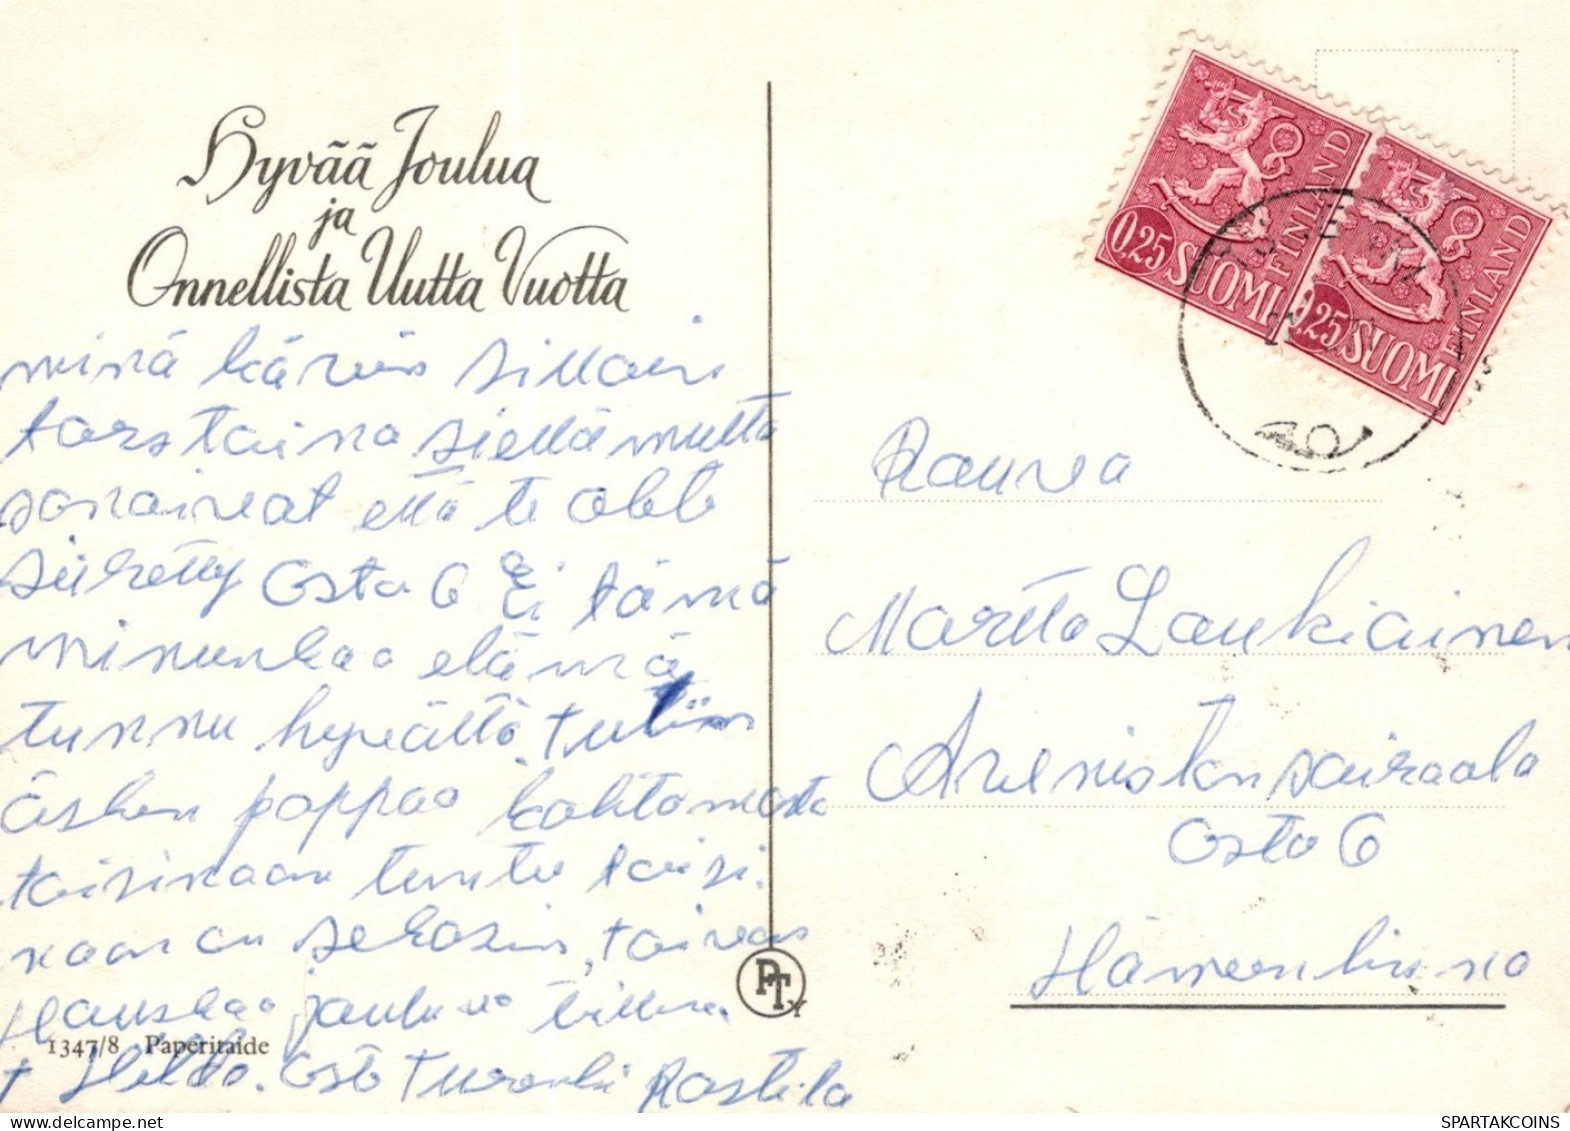 Hyvää Joulua
ja
Onnellista Uutta Vuotta
minä kävin sillain
torstaina siellä mutta
sanoivat että te olette
siiretty Osta 6 Ei tämä
minunkaa elämä
tunnu hyvältä. tulin
äsken pappaa kahtomasta
toisinaan tuntee toisi.
naan on sekasin, toivon
Hauskaa joulu
+ Osto
1347/8 Paperitaide
PTY
0,25 SUOMI FINLAND
0,25 SUOMI FINLAND
Rouva
Martta Laukiainen
sairaala
Osto 6
Hämeenlinna
SPARTAKCOINS